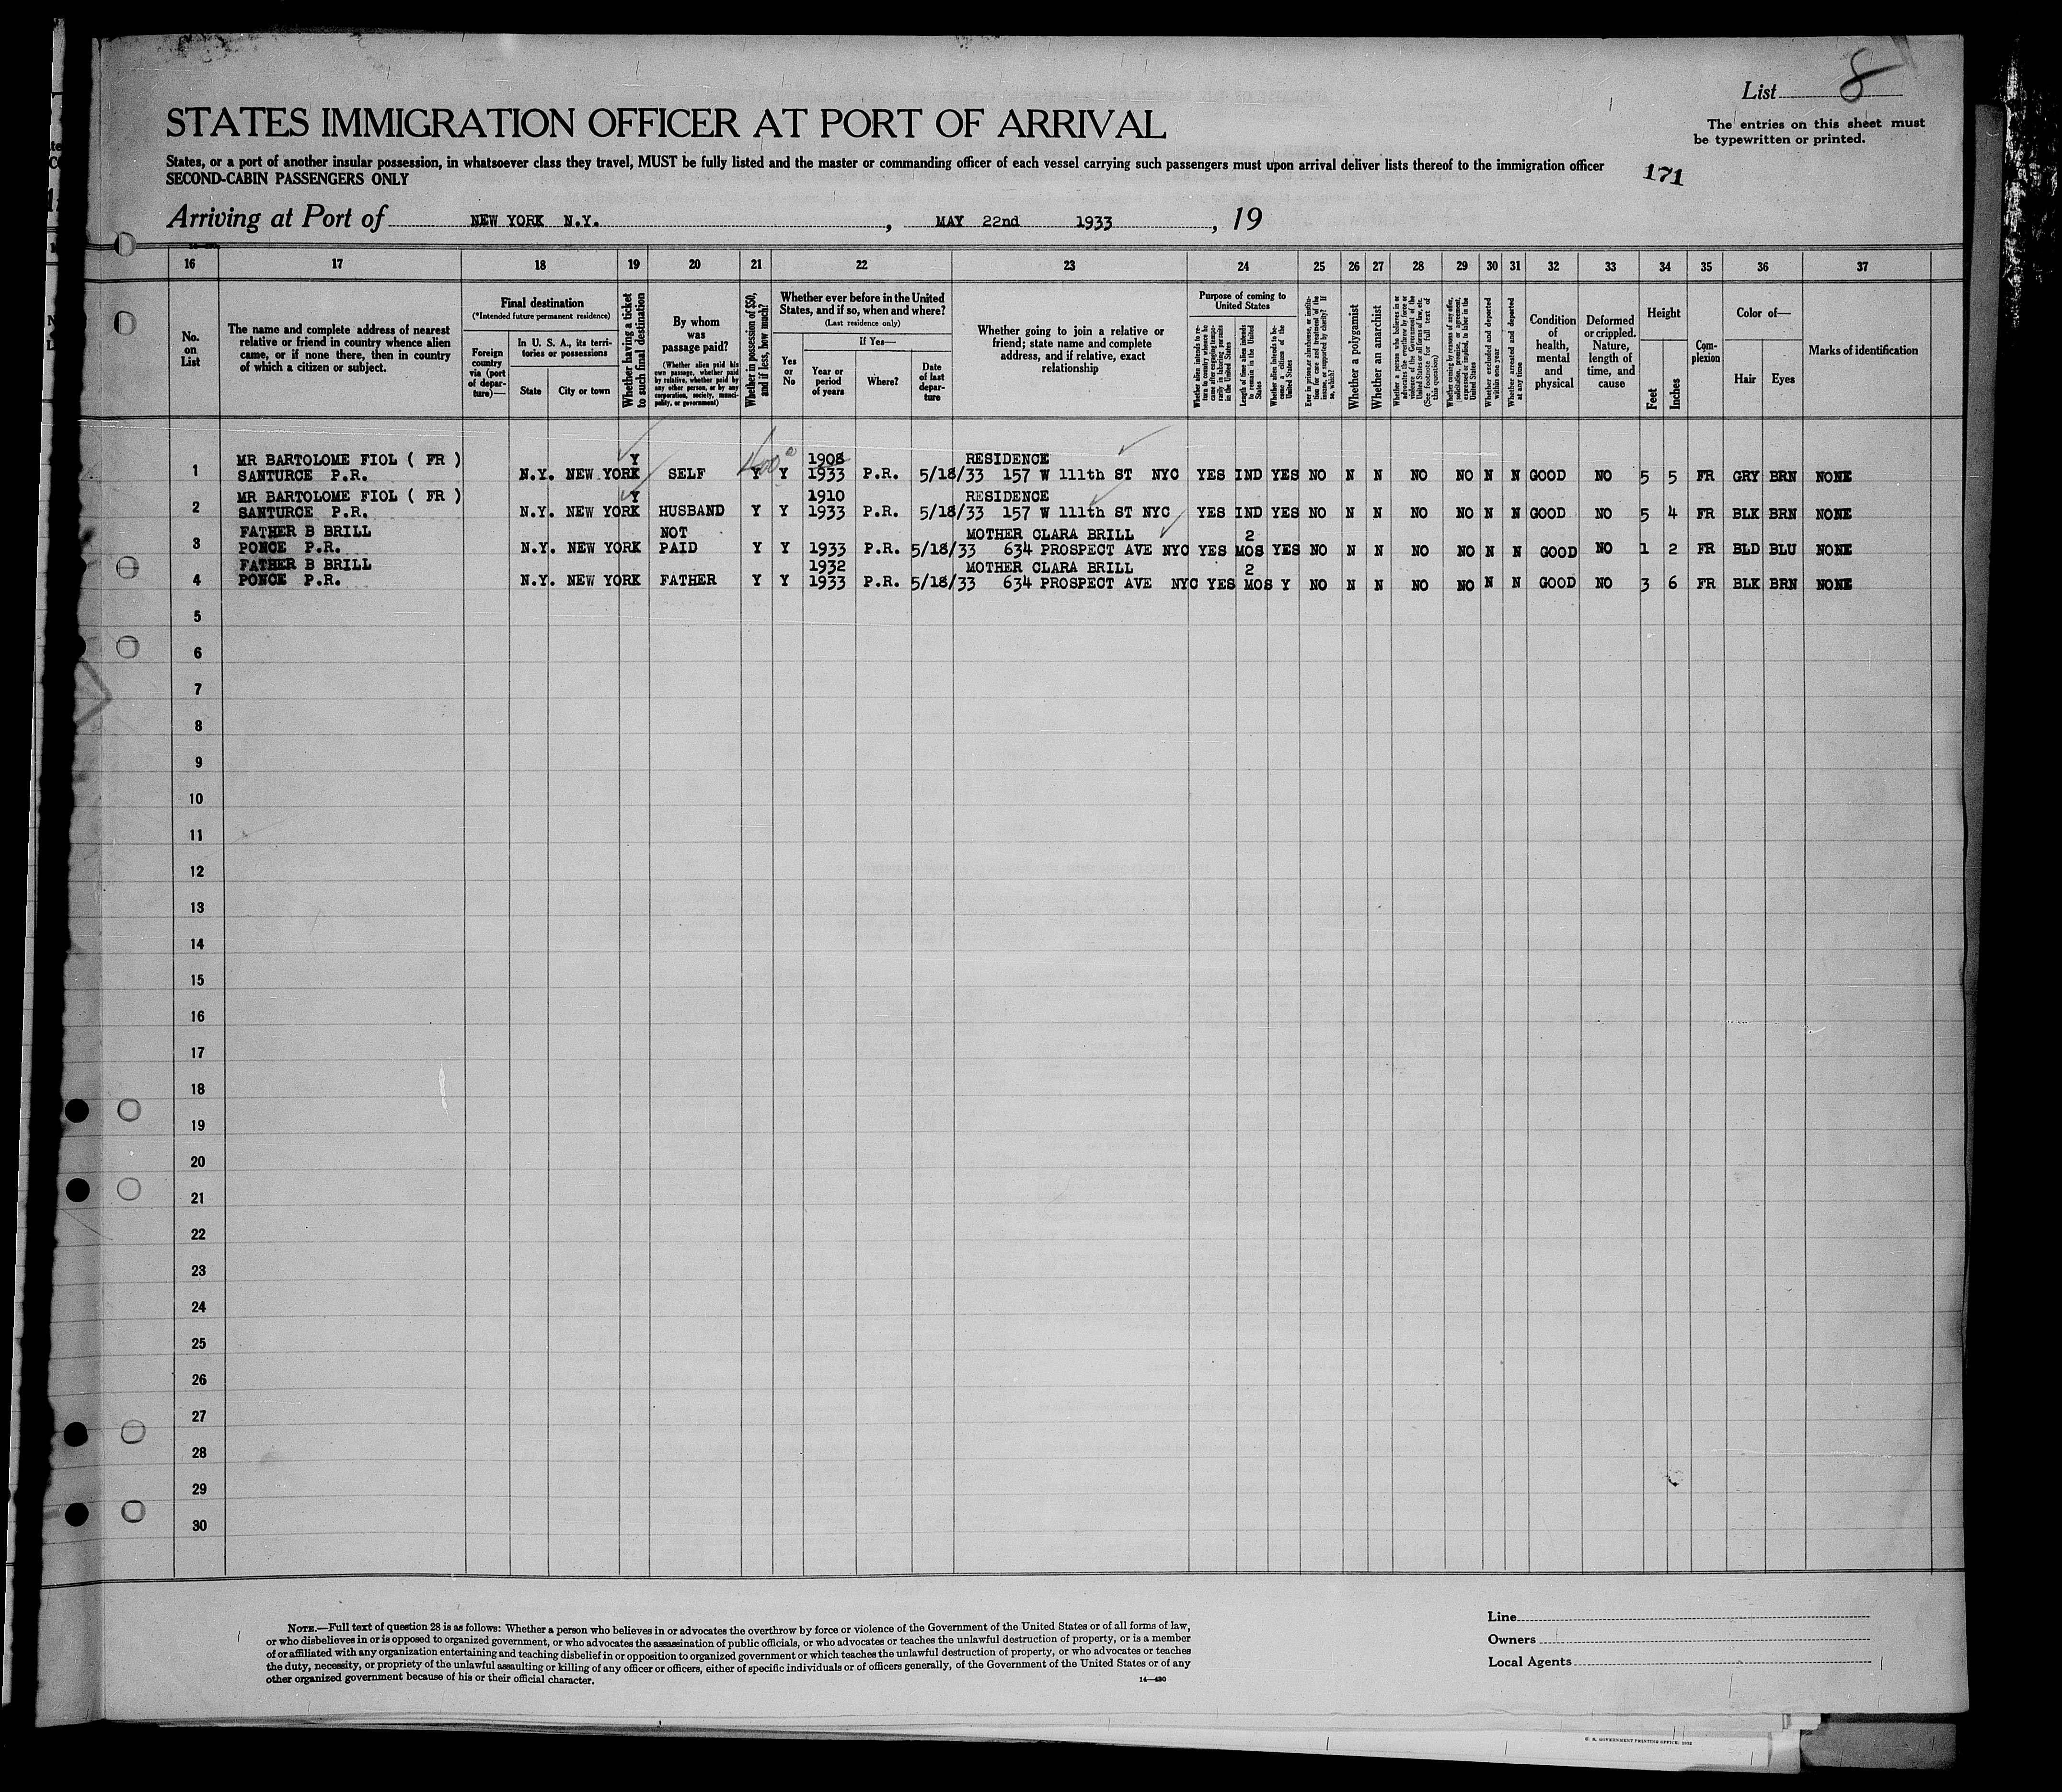 List 8
STATES IMMIGRATION OFFICER AT PORT OF ARRIVAL
The entries on this sheet must
be typewritten or printed.
States, or a port of another insular possession, in whatsoever class they travel, MUST be fully listed and the master or commanding officer of each vessel carrying such passengers must upon arrival deliver lists thereof to the immigration officer
SECOND-CABIN PASSENGERS ONLY
171
Arriving at Port of NEW YORK N.Y. , MAY 22nd 1933 , 19
16 17 18 19 20 21 22 23 24 25 26 27 28 29 30 31 32 33 34 35 36 37
No. on List
The name and complete address of nearest
relative or friend in country whence alien
came, or if none there, then in country
of which a citizen or subject.
Final destination
(*Intended future permanent residence)
Foreign country via (port of departure)—
In U. S. A., its territories or possessions
State
City or town
Whether having a ticket to such final destination
By whom was passage paid?
(Whether alien paid his own passage, whether paid by relative, whether paid by any other person, or by any corporation, society, municipality, or government)
Whether in possession of $50, and if less, how much?
Whether ever before in the United States, and if so, when and where?
(Last residence only)
Yes or No
If Yes—
Year or period of years
Where?
Date of last departure
Whether going to join a relative or
friend; state name and complete
address, and if relative, exact
relationship
Purpose of coming to United States
Whether alien intends to return to country whence he came after engaging temporarily in laboring pursuits in the United States
Length of time alien intends to remain in the United States
Whether alien intends to become a citizen of the United States
Ever in prison, or almshouse, or institution for care and treatment of the insane, or supported by charity? If so, which?
Whether a polygamist
Whether an anarchist
Whether a person who believes in or advocates the overthrow by force or violence of the Government of the United States or all forms of law, etc. (See footnote for full text of this question)
Whether coming by reasons of any offer, solicitation, promise, or agreement, expressed or implied, to labor in the United States
Whether excluded and deported within one year
Whether arrested and deported at any time
Condition of health, mental and physical
Deformed or crippled. Nature, length of time, and cause
Height
Feet
Inches
Complexion
Color of—
Hair
Eyes
Marks of identification
MR BARTOLOME FIOL ( FR ) Y 1908 RESIDENCE
1 SANTURCE P.R. N.Y. NEW YORK SELF Y Y 1933 P.R. 5/18/33 157 W 111th ST NYC YES IND YES NO N N NO NO N N GOOD NO 5 5 FR GRY BRN NONE
MR BARTOLOME FIOL ( FR ) Y 1910 RESIDENCE
2 SANTURCE P.R. N.Y. NEW YORK HUSBAND Y Y 1933 P.R. 5/18/33 157 W 111th ST NYC YES IND YES NO N N NO NO N N GOOD NO 5 4 FR BLK BRN NONE
FATHER B BRILL NOT MOTHER CLARA BRILL 2
3 PONCE P.R. N.Y. NEW YORK PAID Y Y 1933 P.R. 5/18/33 634 PROSPECT AVE NYC YES MOS YES NO N N NO NO N N GOOD NO 1 2 FR BLD BLU NONE
FATHER B BRILL 1932 MOTHER CLARA BRILL 2
4 PONCE P.R. N.Y. NEW YORK FATHER Y Y 1933 P.R. 5/18/33 634 PROSPECT AVE NYC YES MOS Y NO N N NO NO N N GOOD NO 3 6 FR BLK BRN NONE
5
6
7
8
9
10
11
12
13
14
15
16
17
18
19
20
21
22
23
24
25
26
27
28
29
30
NOTE.—Full text of question 28 is as follows: Whether a person who believes in or advocates the overthrow by force or violence of the Government of the United States or of all forms of law,
or who disbelieves in or is opposed to organized government, or who advocates the assassination of public officials, or who advocates or teaches the unlawful destruction of property, or is a member
of or affiliated with any organization entertaining and teaching disbelief in or opposition to organized government or which teaches the unlawful destruction of property, or who advocates or teaches
the duty, necessity, or propriety of the unlawful assaulting or killing of any officer or officers, either of specific individuals or of officers generally, of the Government of the United States or of any
other organized government because of his or their official character.
14—430
Line
Owners
Local Agents
U. S. GOVERNMENT PRINTING OFFICE: 1932